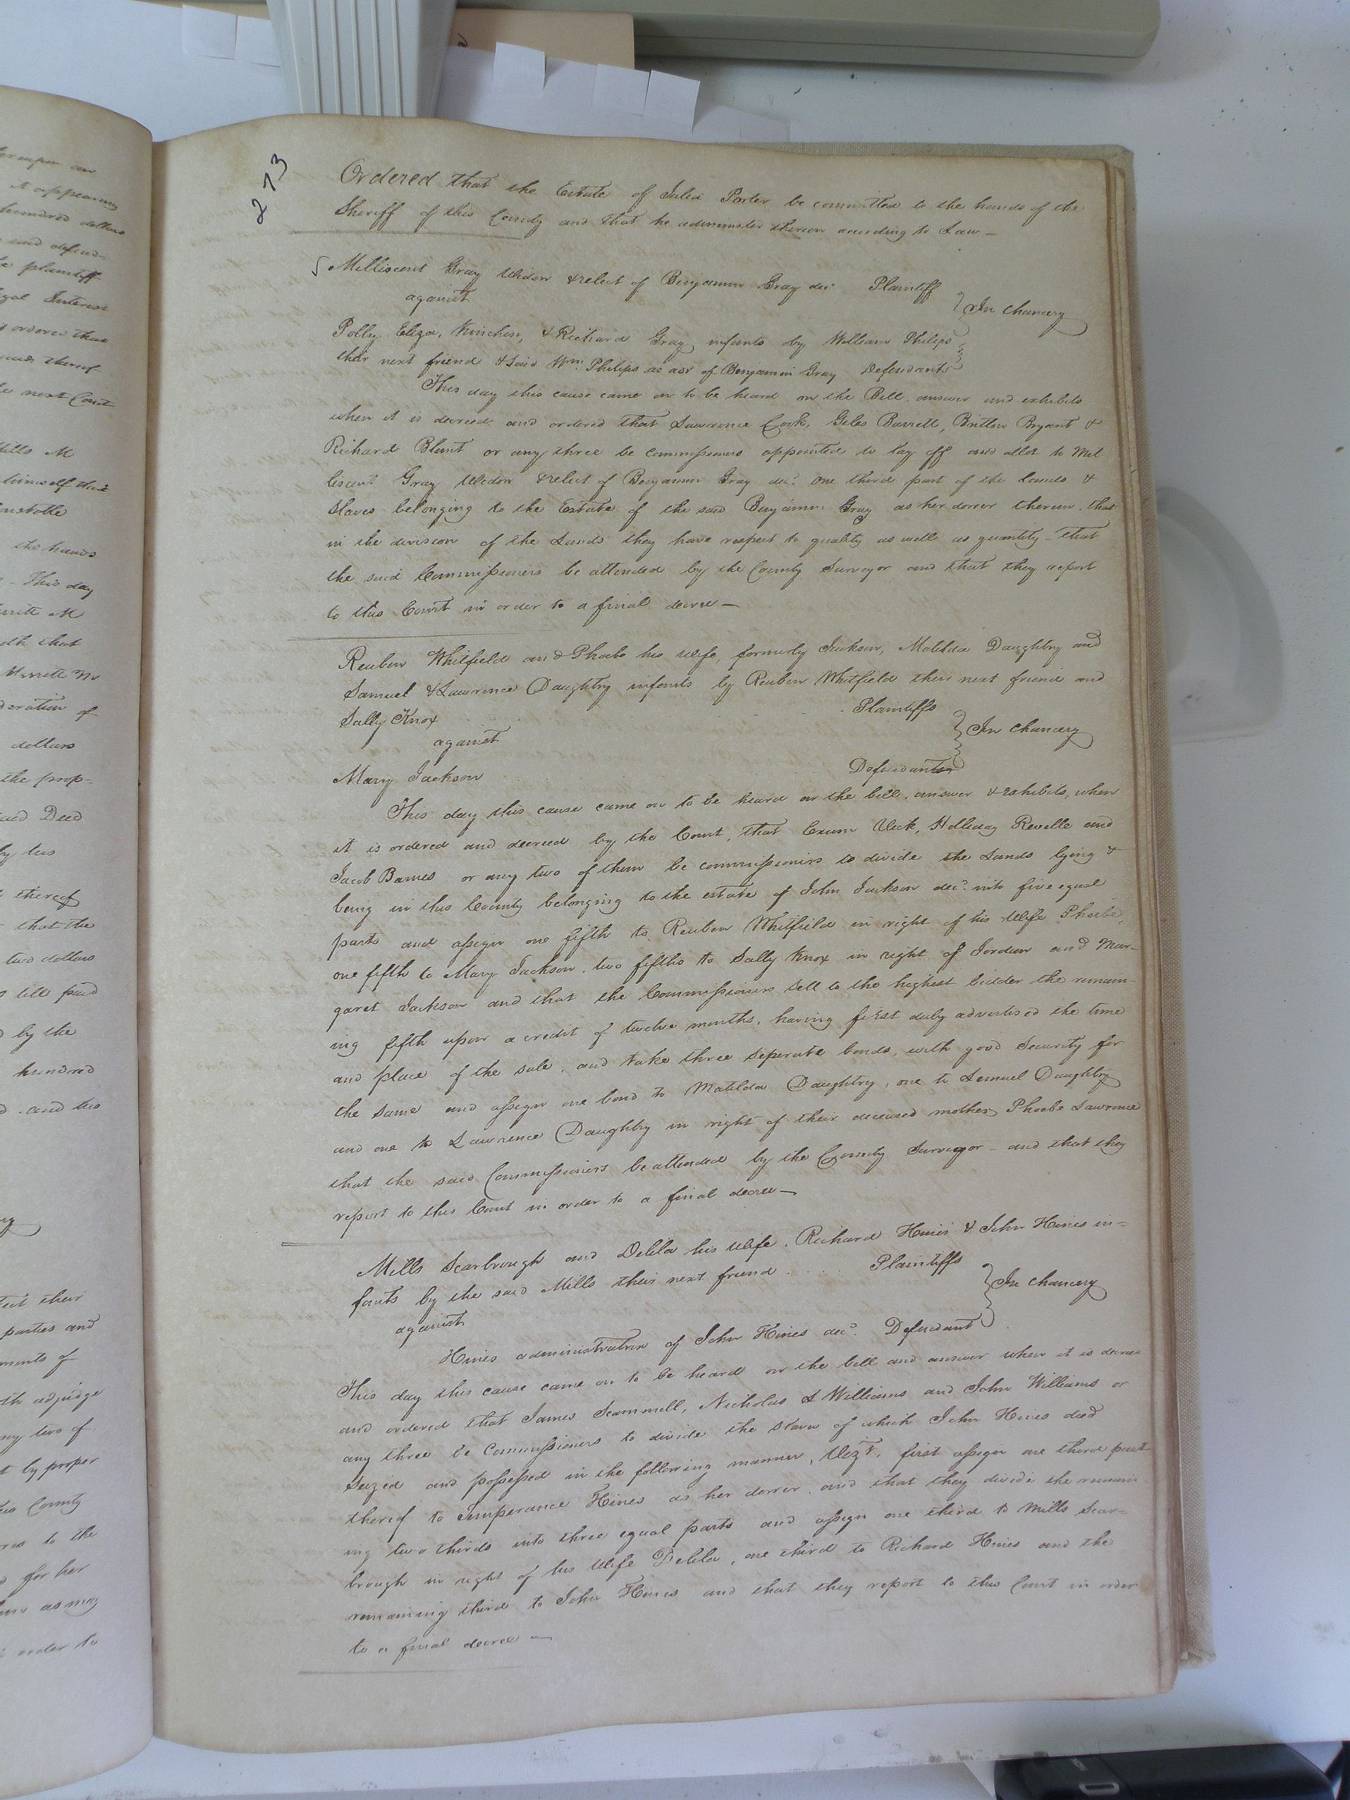 273
Ordered that the Estate of Julia Porter be committed to the hands of the
Sheriff of this County and that he administer thereon according to Law —
Milliscent Gray Widow & relect of Benjamin Gray decd. Plaintiff
against
In Chancery
Polly, Eliza, Kinchen, & Richard Gray infants by William Philips
their next friend & said Wm. Philips as adr of Benjamin Gray Defendants
This day this cause came on to be heard on the Bill, answer and exhibits
when it is decreed and ordered that Lawrence Cook, Giles Barrett, Britten Bryant &
Richard Blunt or any three be commissioners appointed to lay off and allot to Mil
liscent Gray Widow & relect of Benjamin Gray decd. one third part of the lands &
slaves belonging to the Estate of the said Benjamin Gray as her dower therein, that
in the division of the Lands they have respect to quality as well as quantity - that
the said Commissioners be attended by the County Surveyor and that they report
to this Court in order to a final decree —
Reuben Whitfield and Phoebe his wife, formerly Jackson, Matilda Daughtry and
Samuel & Lawrence Daughtry infants by Reuben Whitfield their next friend and
Sally Knox Plaintiffs
against
In Chancery
Mary Jackson Defendants
This day this cause came on to be heard on the bill, answer & exhibits, when
it is ordered and decreed by the Court, that Exum Vick, Holliday Revelle and
Jacob Barnes or any two of them be commissioners to divide the Lands lying &
being in this County belonging to the estate of John Jackson decd. into five equal
parts and assign one fifth to Reuben Whitfield in right of his Wife Phoebe,
one fifth to Mary Jackson, two fifths to Sally Knox in right of Jordan and Mar-
garet Jackson and that the Commissioners sell to the highest bidder the remain-
ing fifth upon a credit of twelve months, having first duly advertised the time
and place of the sale, and take three seperate bonds, with good Security for
the same and assign one bond to Matilda Daughtry, one to Lemuel Daughtry
and one to Lawrence Daughtry in right of their deceased mother, Phoebe Lawrence
that the said Commissioners be attended by the County Surveyor - and that they
report to this Court in order to a final decree —
Mills Scarbrough and Delila his wife, Richard Hines & John Hines in-
fants by the said Mills their next friend Plaintiffs
against
In Chancery
Hines administratrix of John Hines decd. Defendant
This day this cause came on to be heard on the bill and answer when it is decreed
and ordered that James Scammell, Nicholas L Williams and John Williams or
any three be Commissioners to divide the slaves of which John Hines died
Seized and possessed in the following manner, Vizt. first assign one third part
thereof to Temperance Hines as her dower and that they divide the remain
ing two thirds into three equal parts and assign one third to Mills Scar-
brough in right of his Wife Delila, one third to Richard Hines and the
remaining third to John Hines and that they report to this Court in order
to a final decree —